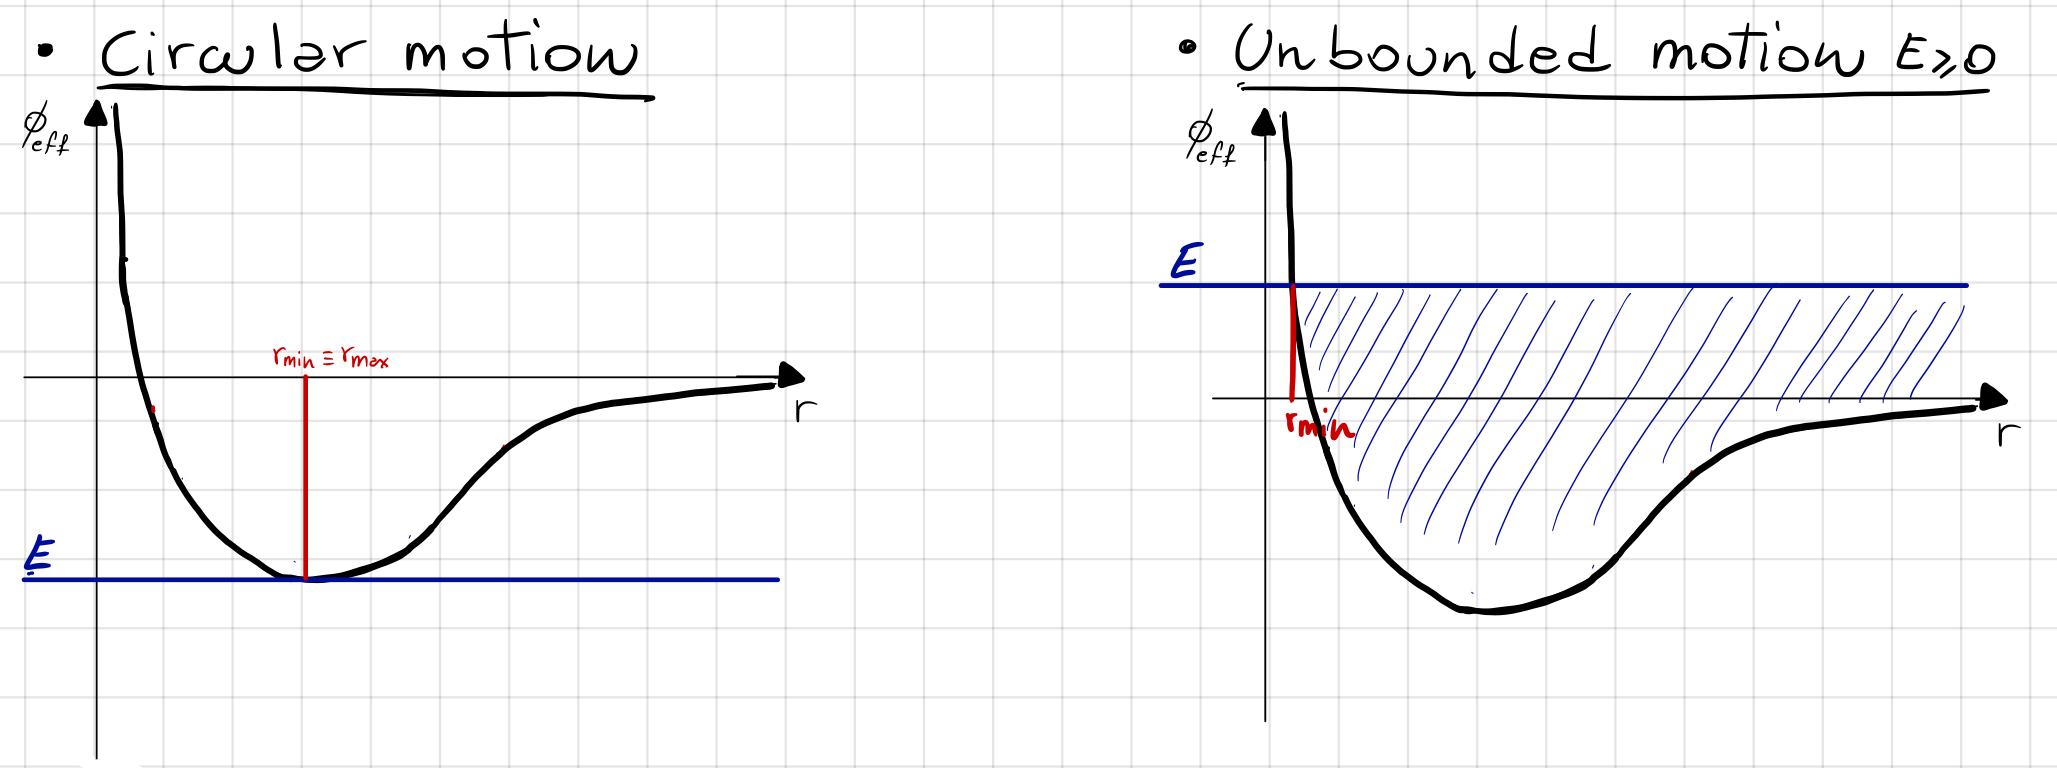 • Circular motion
ϕeff
rmin ≡ rmax
r
E
• Unbounded motion E⩾0
ϕeff
E
rmin
r